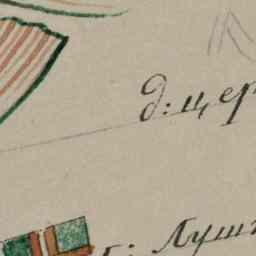 д: цер
г: Луш